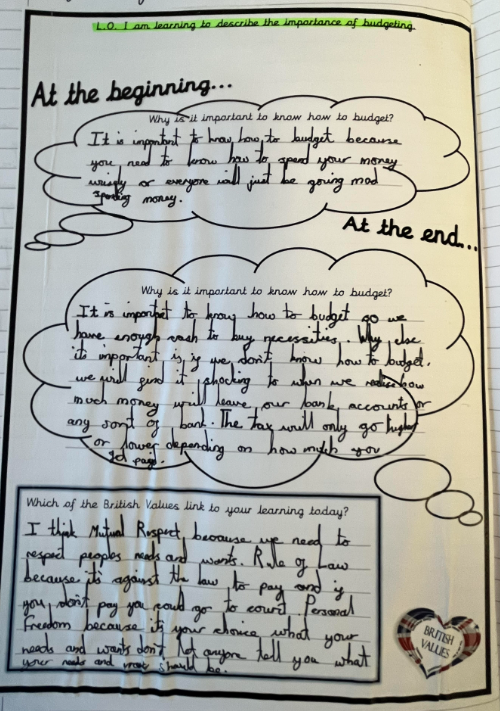 L.O. I am learning to describe the importance of budgeting.
At the beginning...
Why is it important to know how to budget?
It is important to know how to budget because
you need to know how to spend your money
or everyone will just be going mod
money.
At the end...
Why is it important to know how to budget?
It is important to know how to budget so we
have enough cash to buy necessities. Why else
its important is if we don't know how to budget.
we will find it shocking to when we how
much money will leave our bank accounts or
any sort of bank. The tax will only go higher
or lower depending on how much you
get paid.
Which of the British Values link to your learning today?
I think Mutual Respect because we need to
respect peoples needs and wants. Rule of Law
because its against the law to pay and if
you don't pay you could go to court. Personal
Freedom because its your choice what your
needs and wants don't let anyone tell you what
your needs and wants should be.
BRITISH
VALUES